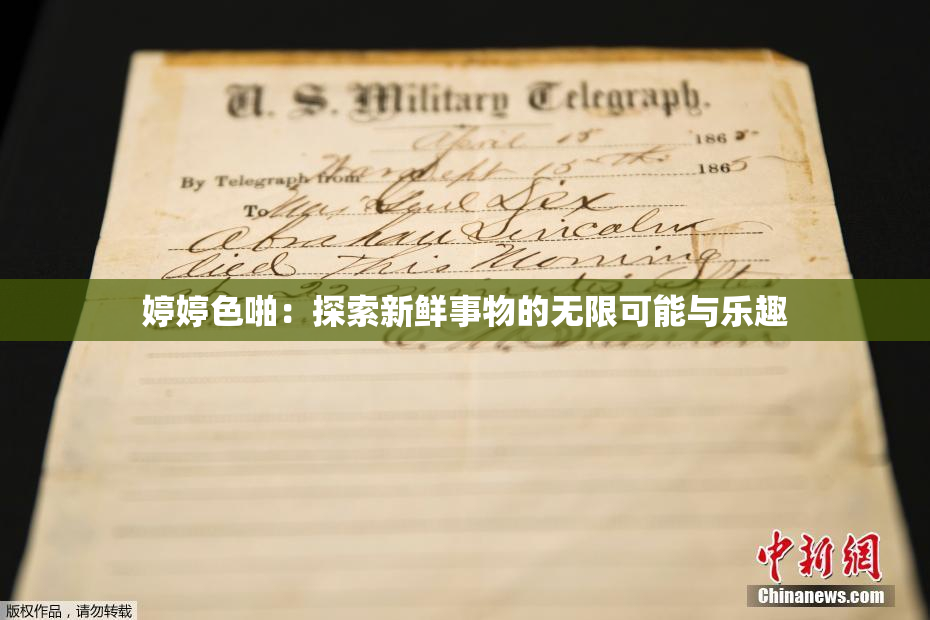 U. S. Military Telegraph.
April 15 1865
By Telegraph from War Dept 15th 1865
To Maj Genl Dix
Abraham Lincoln
died This Morning
at 22 minutes after
婷婷色啪：探索新鲜事物的无限可能与乐趣
E. M. Stanton
中新網
Chinanews.com
版权作品，请勿转载